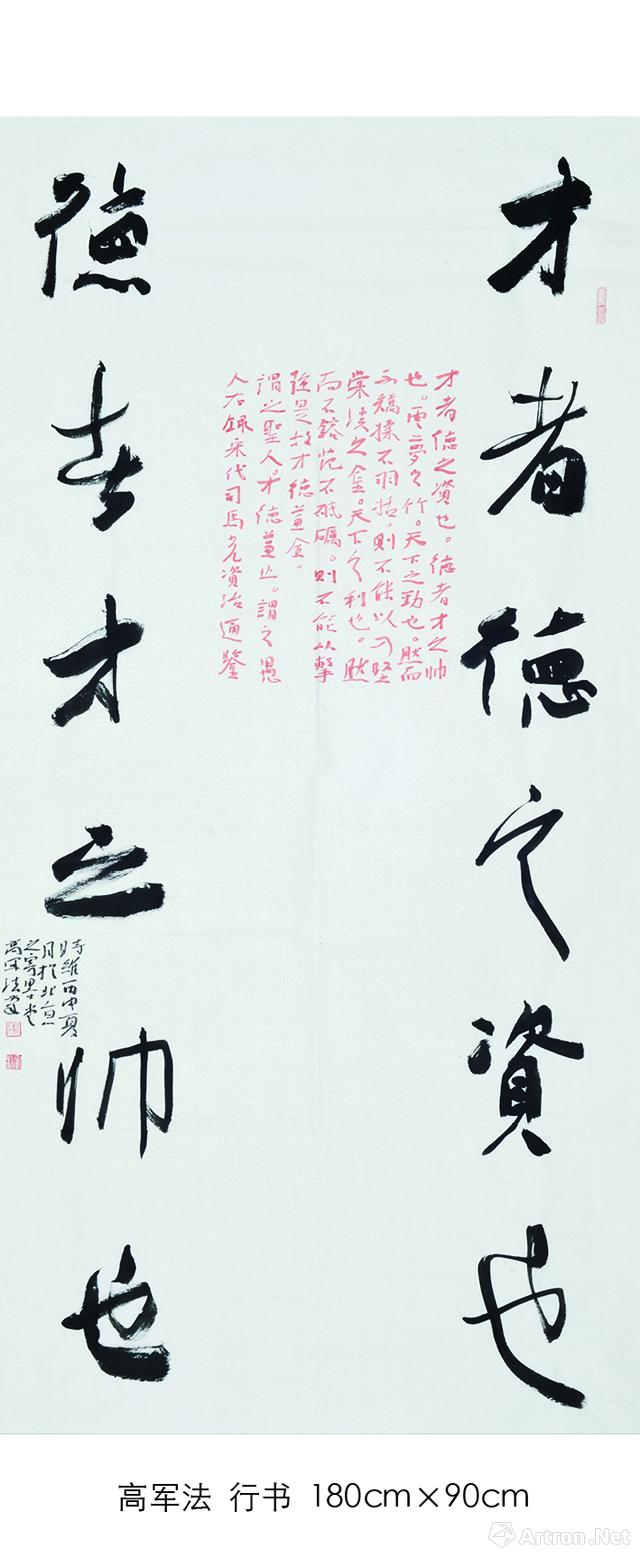 才者德之資也
才者德之資也。德者才之帅
也。雲夢之竹。天下之勁也。然而
不矯揉不羽括,則不能以入堅
棠溪之金。天下之利也。然
而不鎔范不砥礪。則不能以擊
強是故才德兼全。
謂之聖人。才德兼亡。謂之愚
人右録宋代司馬光資治通鑒
德者才之帅也
時維丙申夏
月於北京
高军法書
高军法 行书 180cm×90cm
Artron.Net